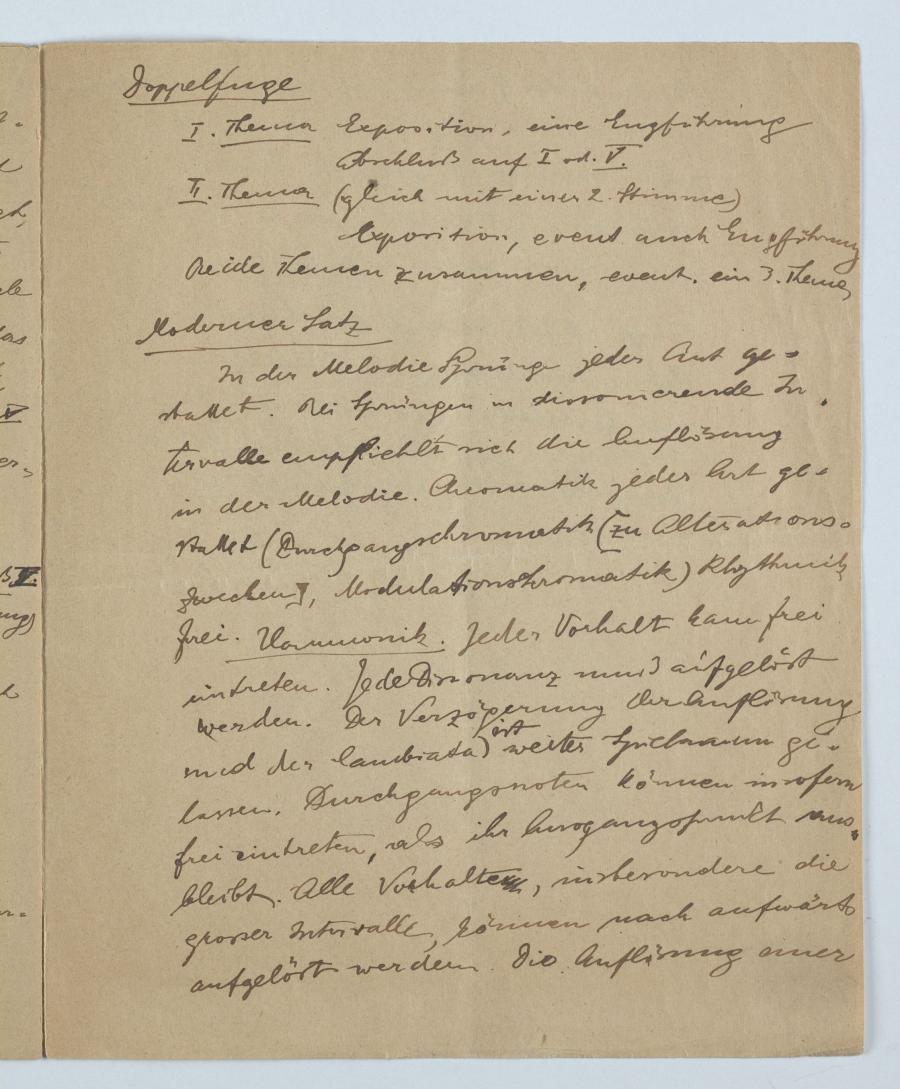 Doppelfuge
I. Thema Exposition, eine Engführung
Abschluß auf I od. V.
II. Thema (gleich mit einer 2. Stimme)
Exposition, event auch Engführung
Beide Themen zusammen, event. ein 3. Thema
Moderner Satz
In der Melodie Sprünge jeder Art ge-
stattet. Bei Sprüngen in dissonierende In-
tervalle empfiehlt sich die Auflösung
in der Melodie. Chromatik jeder Art ge-
stattet (Durchgangschromatik [zu Alterations-
zwecken], Modulationschromatik) Rhythmik
frei. Harmonik. Jeder Vorhalt kann frei
eintreten. Jede Dissonanz muß aufgelöst
werden. Der Verzögerung der Auflösung
und der Cambiata) ist weiter Spielraum ge-
lassen. Durchgangsnoten können insofern
frei eintreten, als ihr Ausgangspunkt aus-
bleibt. Alle Vorhalte, insbesondere die
grosser Intervalle, können nach aufwärts
aufgelöst werden. Die Auflösung einer
V
V.